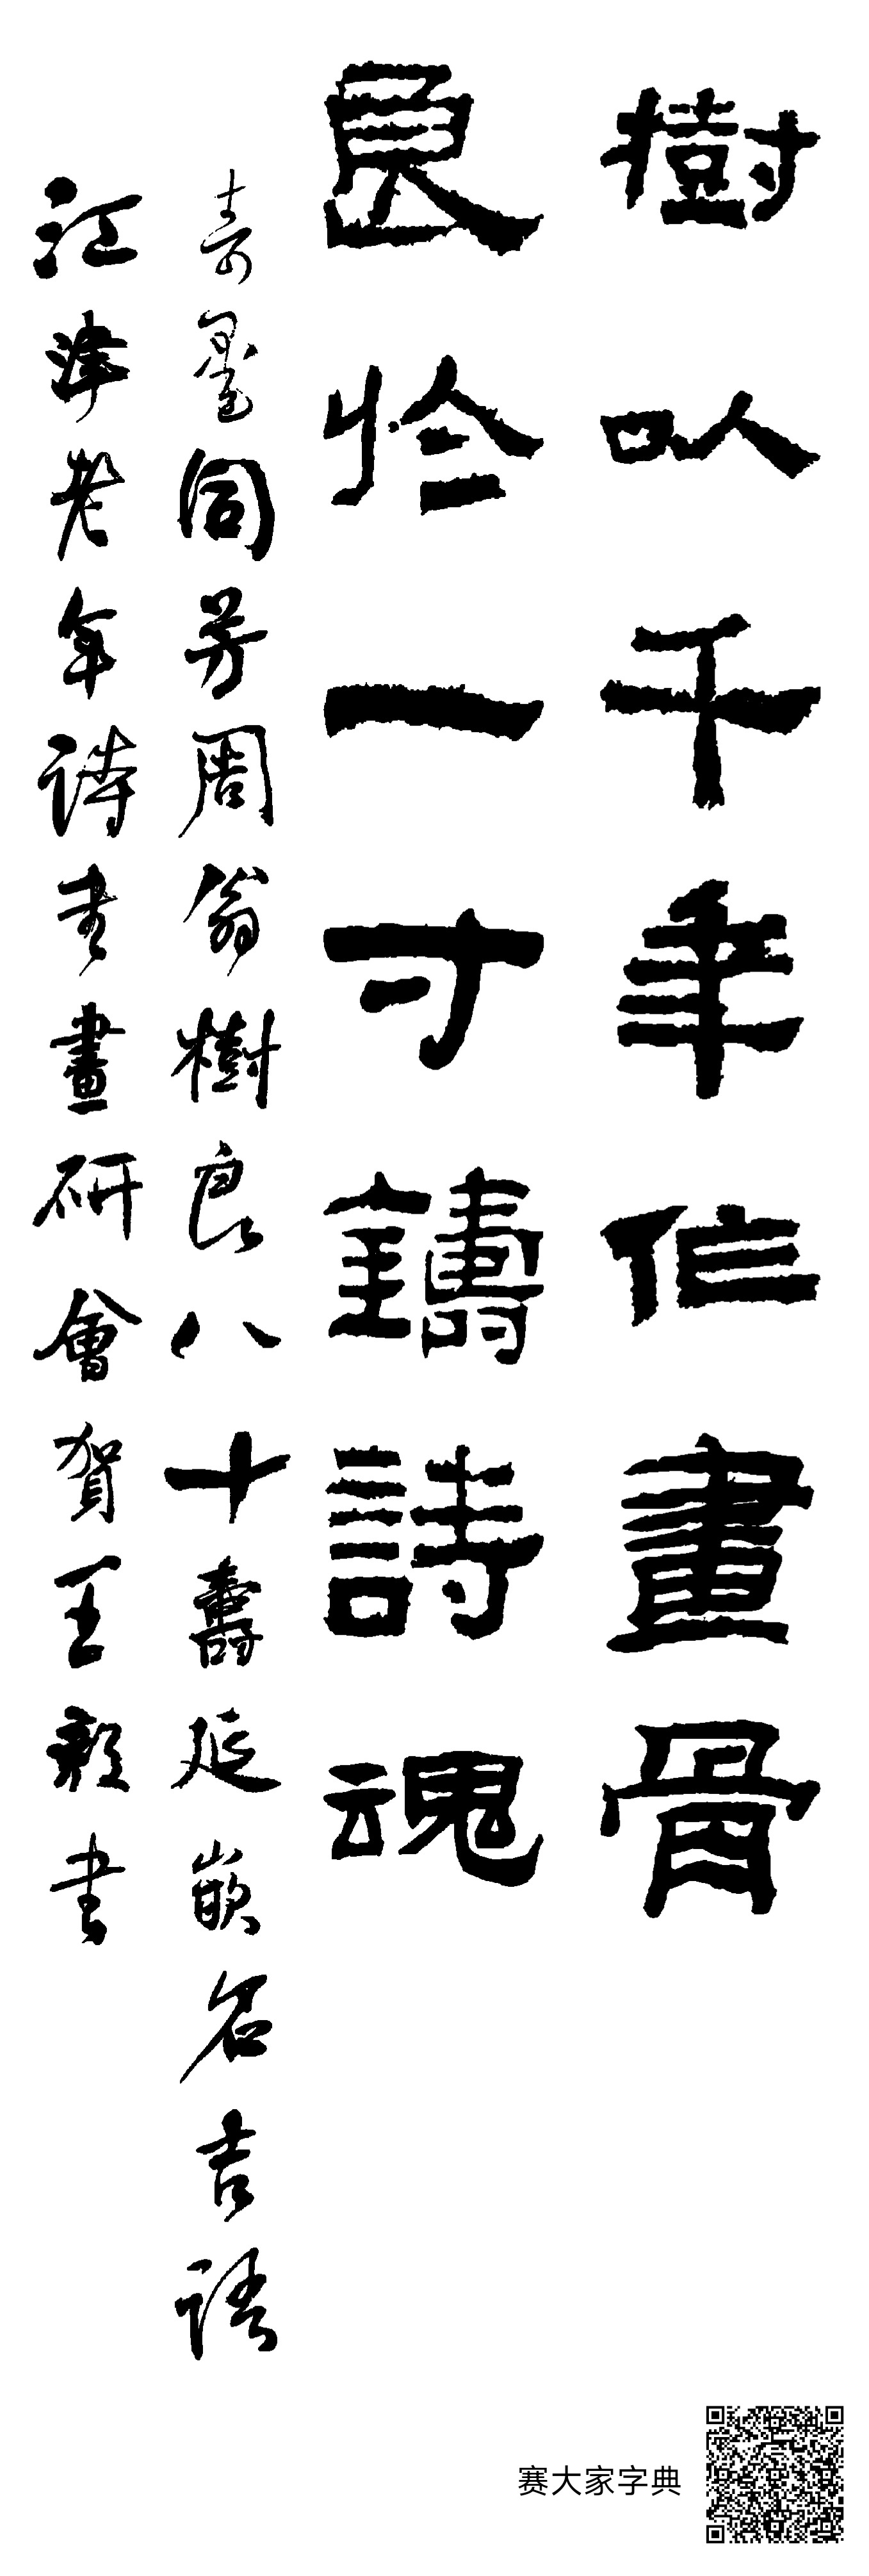 樹以千年作畫骨
良於一寸鑄詩魂
壽墨同芳周翁樹良八十壽延嵌名吉語
江津老年詩書畫研會賀王毅書
赛大家字典